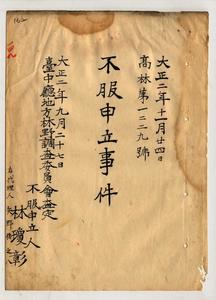 大正二年十一月廿四日
高林第一二二九號
不服申立事件
大正二年九月二十七日
臺中廳地方林野調查委員會查定
不服申立人
林瓊彰
右代理人